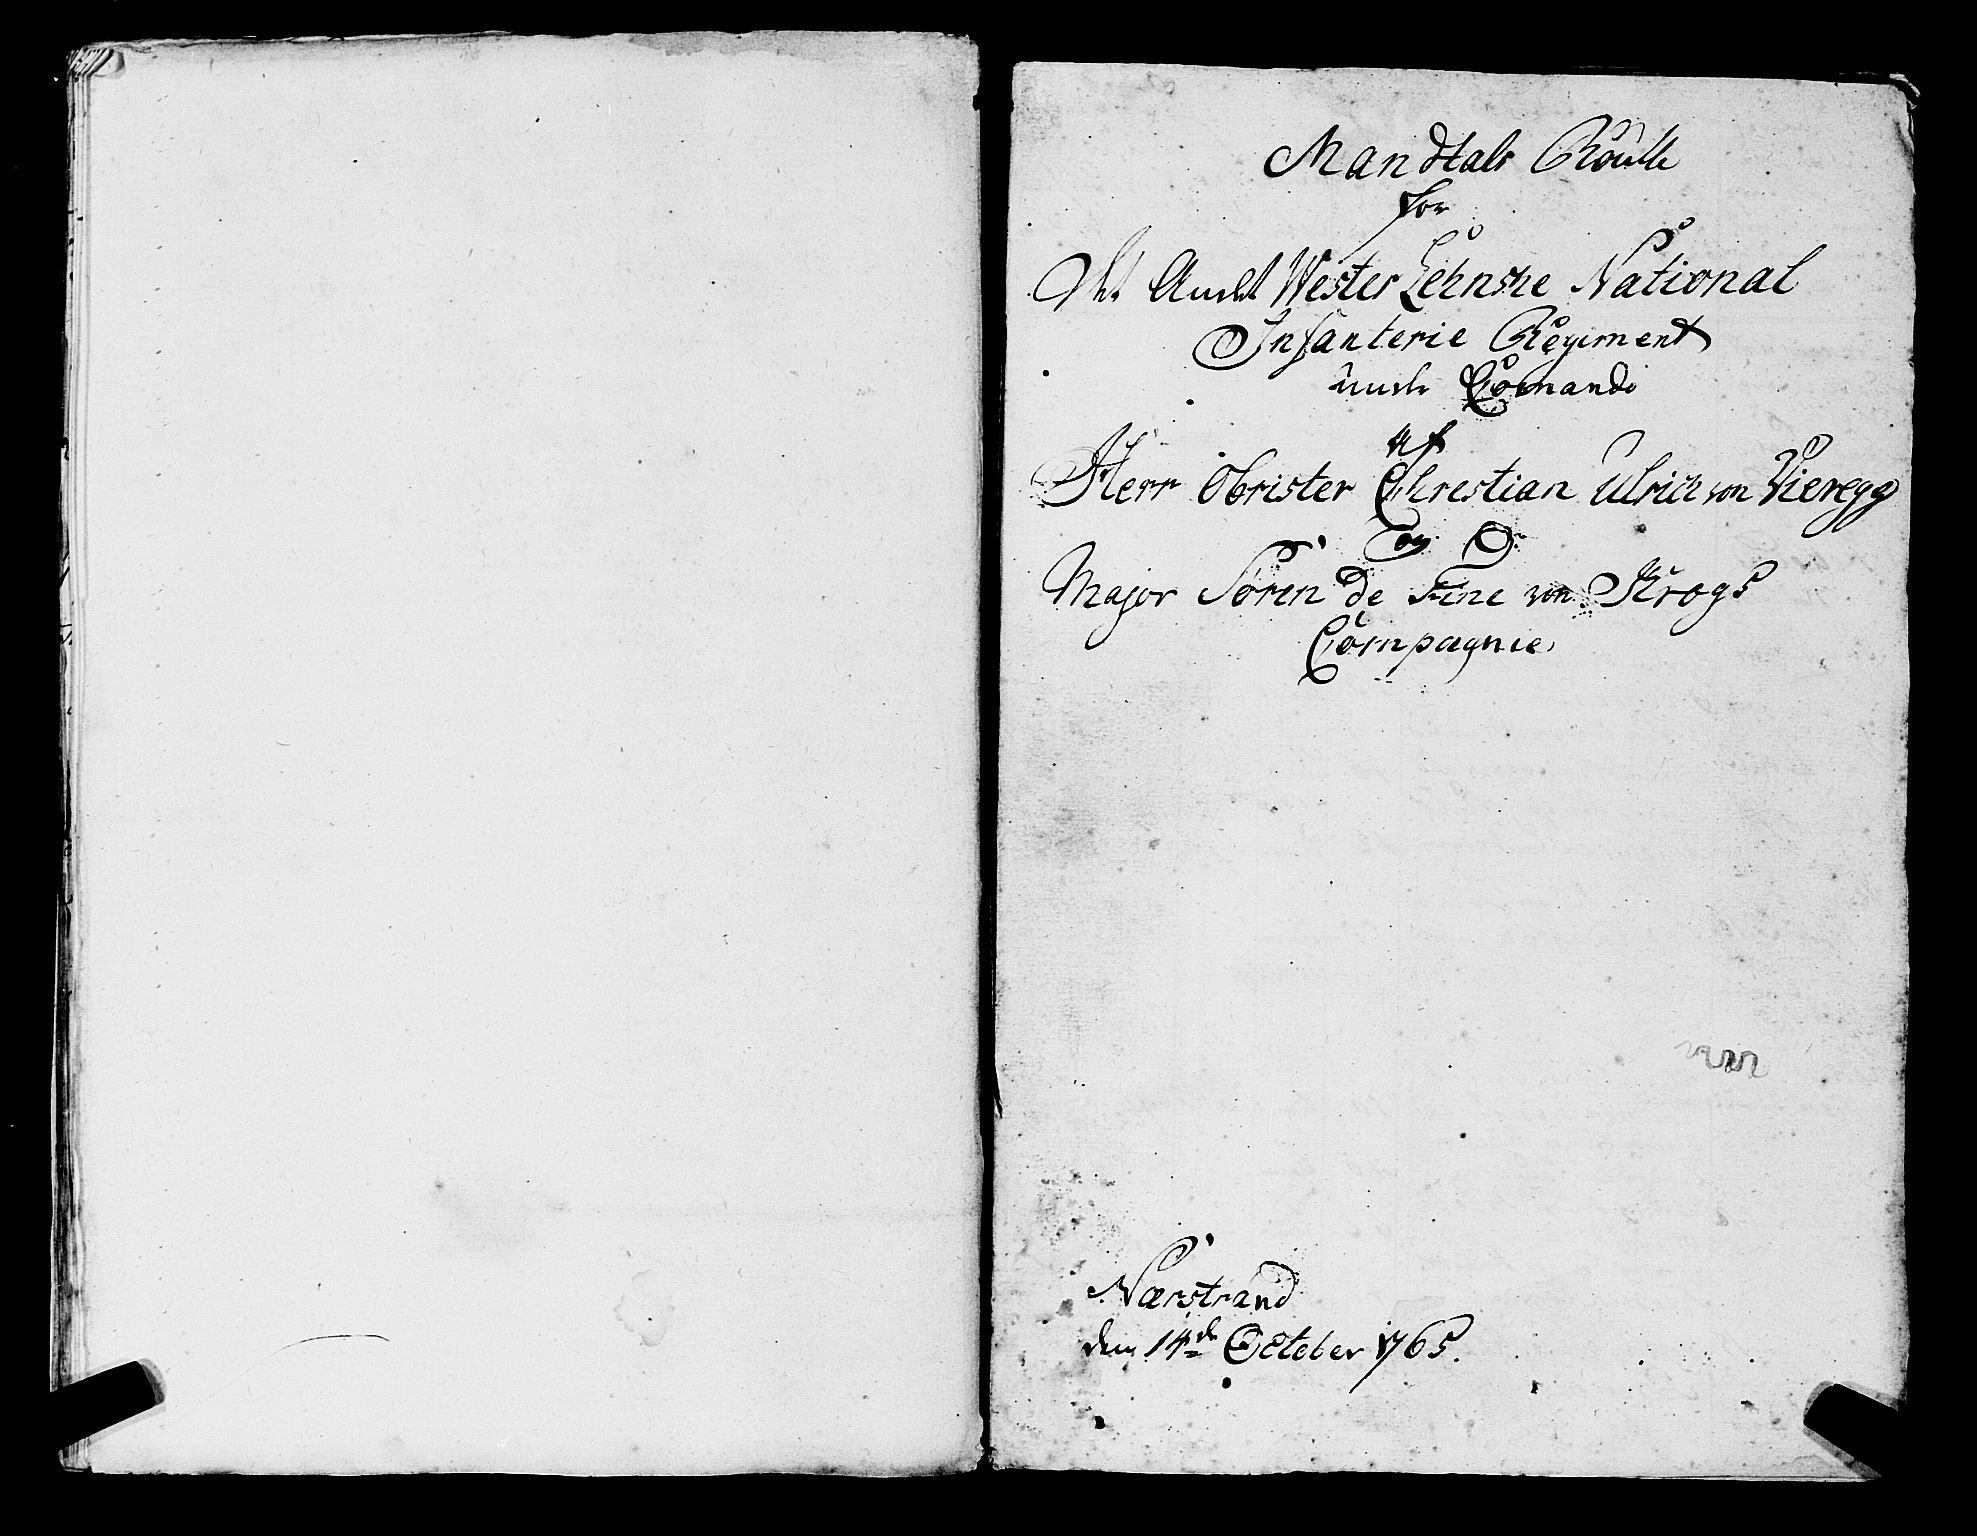 Mandtals Roulle
for
Det Andet Wester Lehnske National
Infanterie Regiment
under Comando
af
Herr Obrister Chrestian Ulrich von Vieregg
og
Major Søren de Fine von Krogs
Compagnie
Nærstrand
den 14de October 1765.